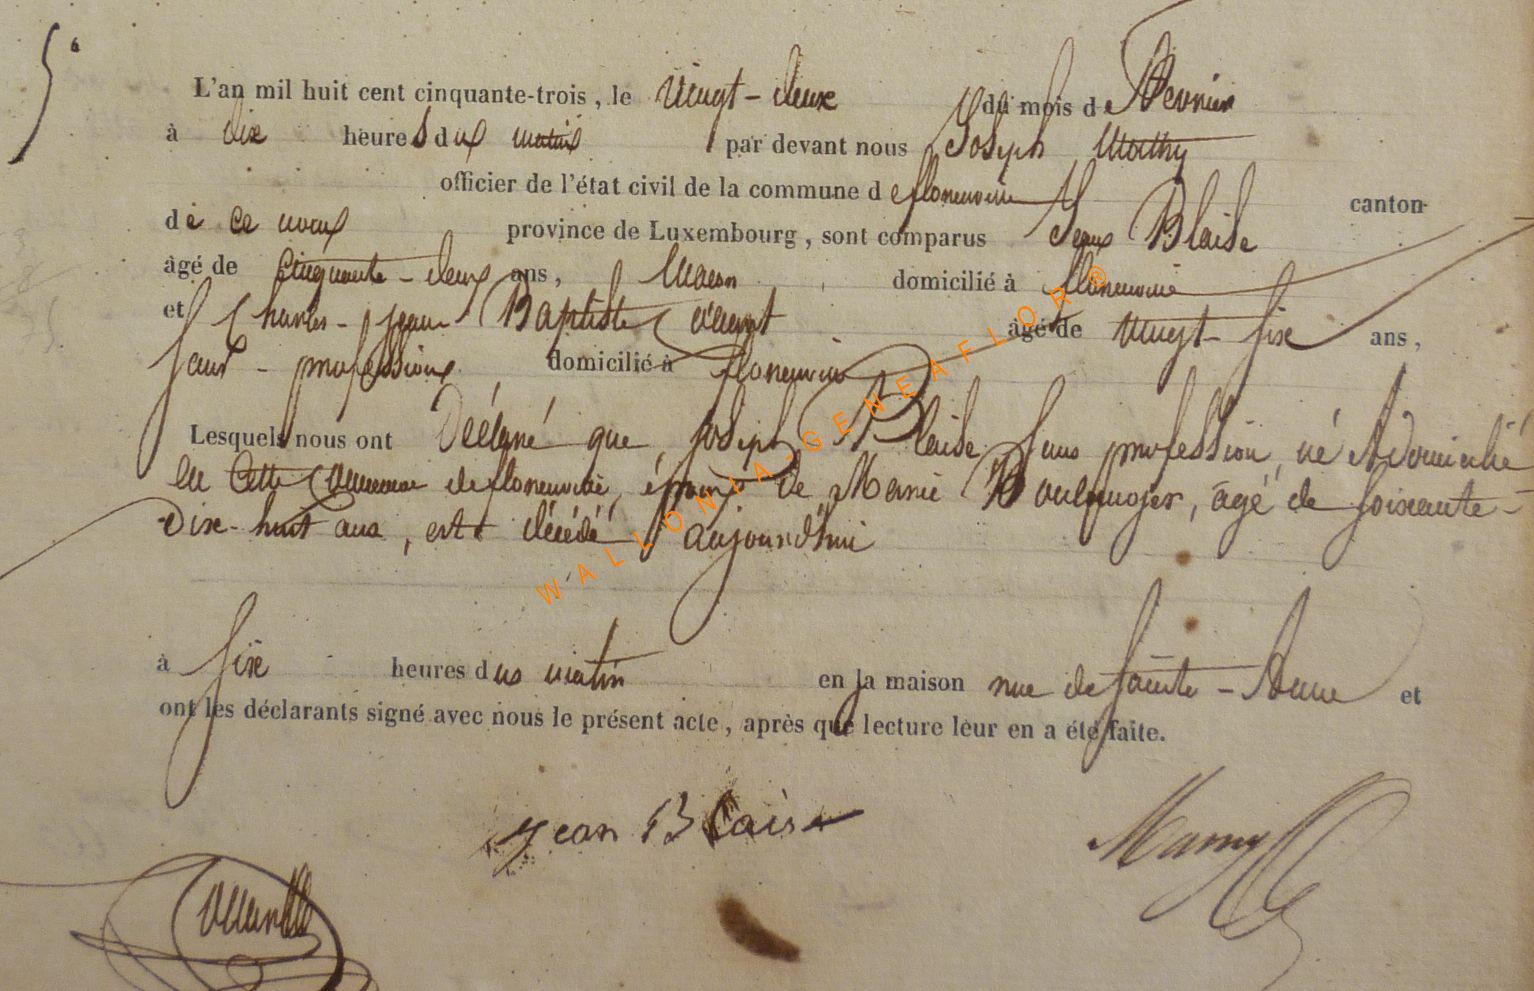 5.
L'an mil huit cent cinquante-trois, le vingt-deux du mois de février
à dix heures du matin par devant nous Joseph Mathy
officier de l'état civil de la commune de florenville canton
de ce nom province de Luxembourg, sont comparus Jean Blaise
âgé de cinquante-deux ans, Maçon domicilié à florenville
et Charles-Jean Baptiste âgé de vingt-six ans,
sans-profession domicilié à florenville
Lesquels nous ont Déclaré que Joseph Blaise Sans profession, né & domicilié
en cette commune de florenville, époux de Marie âgé de soixante-
Dix-huit ans, est décédé aujourd'hui
à six heures du matin en sa maison rue de Sainte-Anne et
ont les déclarants signé avec nous le présent acte, après que lecture leur en a été faite.
Jean Blaise
WALLONIA-GENEAFLOR®